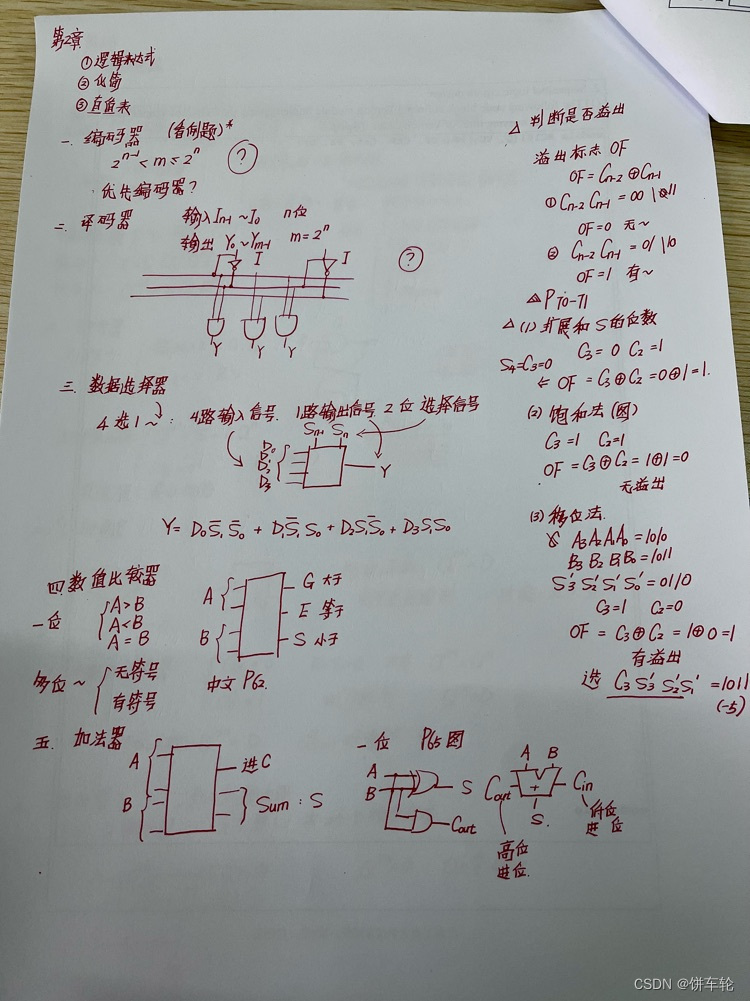 第2章
①逻辑表达式
②化简
③真值表
一、编码器 (看例题)*
2^{n-1} < m ≤ 2^n ?
优先编码器?
二、译码器 输入 I_{n-1} ~ I_0 n位
输出 Y_0 ~ Y_{m-1} m=2^n
I I ?
Y Y Y
三、数据选择器
4选1~: 4路输入信号. 1路输出信号 2位选择信号
S_{n-1} S_n
D_0
D_1
D_2
D_3
Y
Y = D_0 S̄_1 S̄_0 + D_1 S̄_1 S_0 + D_2 S_1 S̄_0 + D_3 S_1 S_0
四 数值比较器
一位 A>B
A<B
A=B
A B
G 大于
E 等于
S 小于
多位~ 无符号
有符号
中文 P62.
五. 加法器
A
B
进C
Sum : S
一位 P65图
A
B
S
Cout
A B
Cout + Cin
S
高位
进位.
低位
进位
△ 判断是否溢出
溢出标志 OF
OF = C_{n-2} ⊕ C_{n-1}
① C_{n-2} C_{n-1} = 00 | 11
OF=0 无~
② C_{n-2} C_{n-1} = 01 | 10
OF=1 有~
△ P70-71
△ (1) 扩展和S的位数
C_3 = 0 C_2 = 1
S_4=C_3=0
⇐ OF = C_3⊕C_2 = 0⊕1 = 1.
(2) 饱和法 (图)
C_3 = 1 C_2 = 1
OF = C_3⊕C_2 = 1⊕1 = 0
无溢出
(3) 移位法.
A_3 A_2 A_1 A_0 = 1010
B_3 B_2 B_1 B_0 = 1011
S_3' S_2' S_1' S_0' = 0110
C_3=1 C_2=0
OF = C_3⊕C_2 = 1⊕0 = 1
有溢出
选 C_3 S_3' S_2' S_1' = 1011
(-5)
CSDN @饼车轮